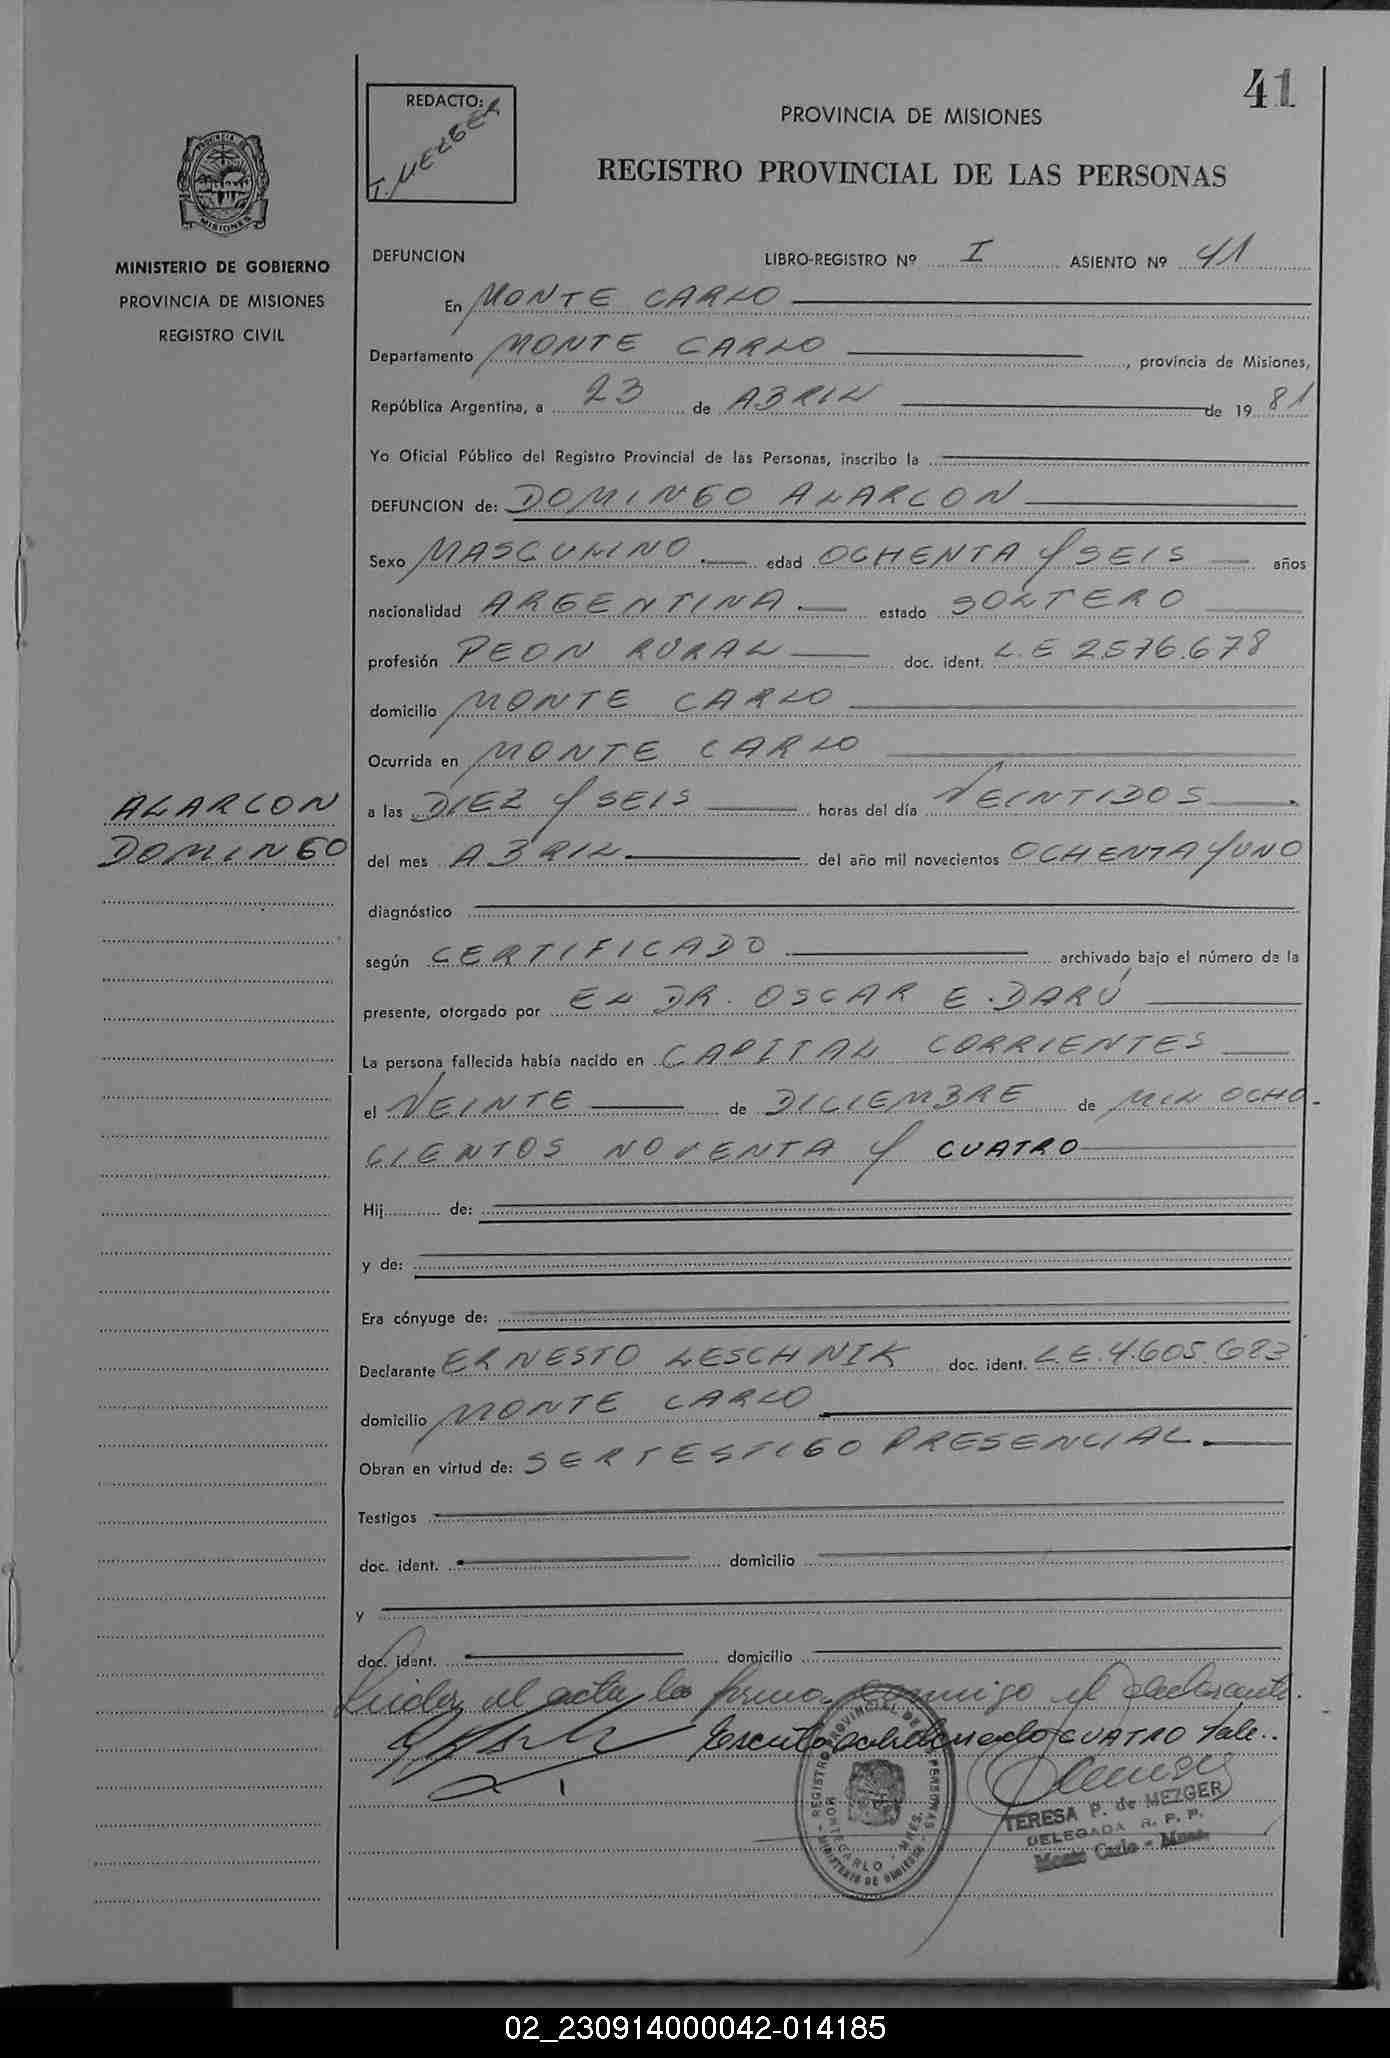 41
REDACTO:
T. MEZGER
PROVINCIA DE MISIONES
REGISTRO PROVINCIAL DE LAS PERSONAS
PROVINCIA DE
MISIONES
MINISTERIO DE GOBIERNO
PROVINCIA DE MISIONES
REGISTRO CIVIL
DEFUNCION LIBRO-REGISTRO Nº I ASIENTO Nº 41
En MONTE CARLO
Departamento MONTE CARLO, provincia de Misiones,
República Argentina, a 23 de ABRIL de 1981
Yo Oficial Público del Registro Provincial de las Personas, inscribo la
DEFUNCION de: DOMINGO ALARCON
Sexo MASCULINO.— edad OCHENTA Y SEIS años
nacionalidad ARGENTINA.— estado SOLTERO
profesión PEON RURAL doc. ident. L.E 2576.678
domicilio MONTE CARLO
Ocurrida en MONTE CARLO
a las DIEZ Y SEIS horas del día VEINTIDOS
del mes ABRIL del año mil novecientos OCHENTA Y UNO
ALARCON
DOMINGO
diagnóstico
según CERTIFICADO archivado bajo el número de la
presente, otorgado por EL DR. OSCAR E. DARÚ
La persona fallecida había nacido en CAPITAL CORRIENTES
el VEINTE de DICIEMBRE de MIL OCHO-
CIENTOS NOVENTA Y CUATRO
Hij de:
y de:
Era cónyuge de:
Declarante ERNESTO LESCHNIK doc. ident. L.E. 4.605.683
domicilio MONTE CARLO
Obran en virtud de: SER TESTIGO PRESENCIAL.
Testigos
doc. ident. domicilio
y
doc. ident. domicilio
Leida el acta la firma conmigo el declarante.
CUATRO Vale..
REGISTRO PROVINCIAL DE LAS PERSONAS
MONTECARLO - MNES.
MINISTERIO DE GOBIERNO
TERESA P. de MEZGER
DELEGADA R. P. P.
Monte Carlo - Mnes.
02_230914000042-014185